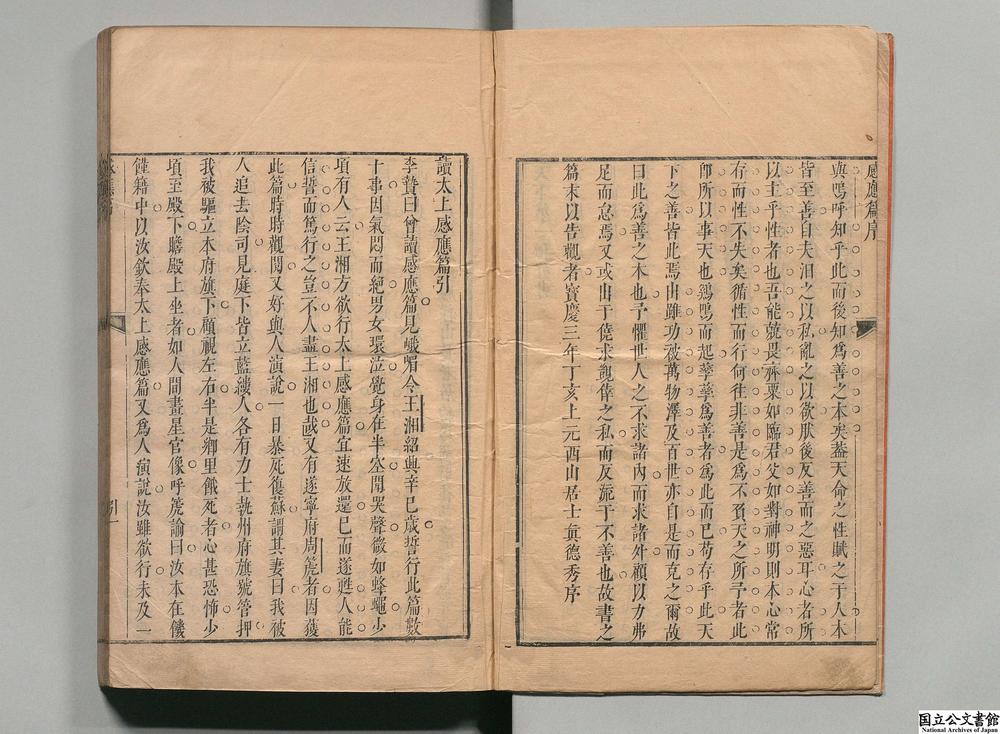 感應篇序
與嗚呼知乎此而後知爲善之本矣蓋天命之性賦之于人本
皆至善自夫汨之以私亂之以欲肰後反善而之惡耳心者所
以主乎性者也吾能兢畏齋栗如臨君父如對神明則本心常
存而性不失矣循性而行何往非善是爲不負天之所予者此
師所以事天也鷄鳴而起孳孳爲善者爲此而已苟存乎此天
下之善皆此焉出雖功被萬物澤及百世亦自是而克之爾故
曰此爲善之本也予懼世人之不求諸內而求諸外顧以力弗
足而怠焉又或出于僥求覬倖之私而反流于不善也故書之
篇末以告觀者寶慶三年丁亥上元西山居士眞德秀序
讀太上感應篇引
李贄曰曾讀感應篇見峨嵋令王湘紹興辛巳歲誓行此篇數
十事因氣悶而絕男女環泣覺身在半空聞哭聲微如蜂蠅少
項有人云王湘方欲行太上感應篇宜速放還已而遂甦人能
信誓而篤行之豈不人盡王湘也哉又有遂寧府周箎者因獲
此篇時時觀閱又好與人演說一日暴死復蘇謂其妻曰我被
人追去陰司見庭下皆立藍縷人各有力士執州府旗號管押
我被驅立本府旗下顧視左右半是鄕里餓死者心甚恐怖少
項至殿下瞻殿上坐者如人間畫星官像呼箎論曰汝本在饑
饉籍中以汝欽奉太上感應篇又爲人演說汝雖欲行未及一
引一
国立公文書館
National Archives of Japan